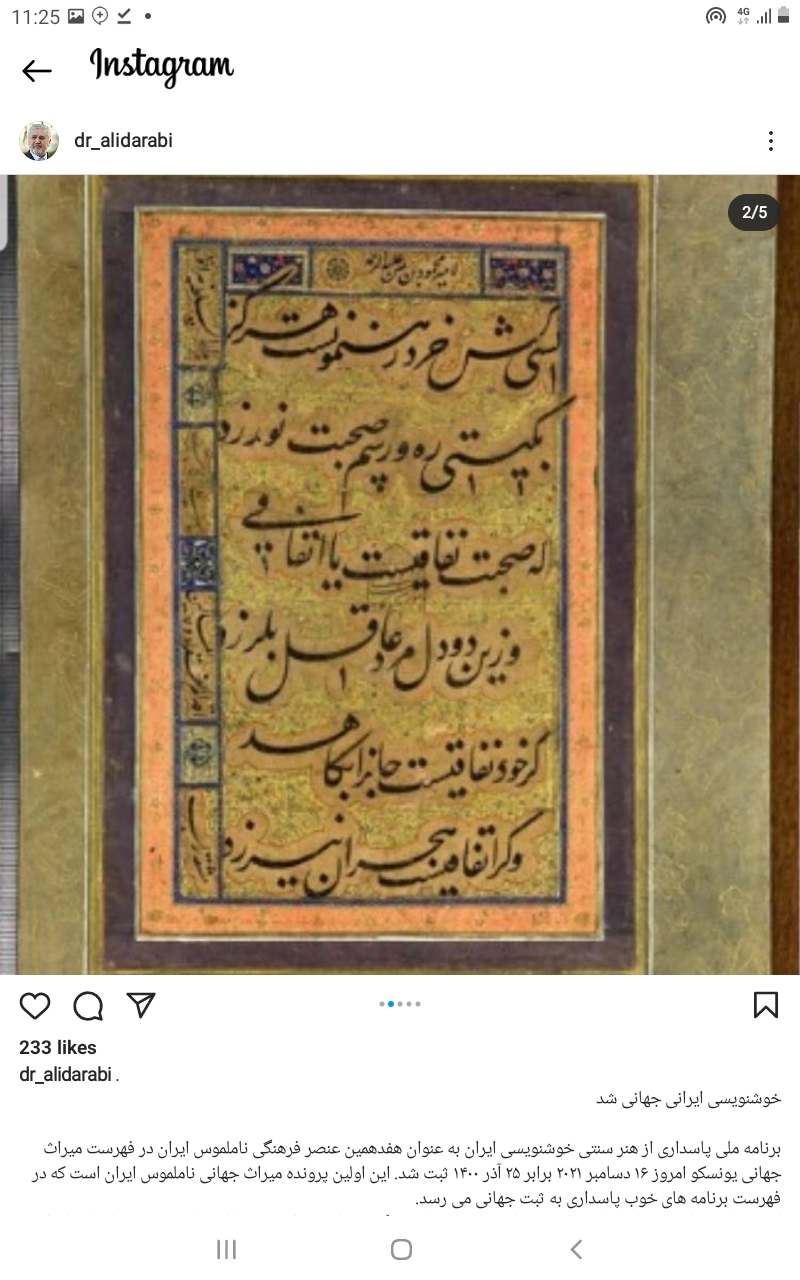 11:25
4G
Instagram
dr_alidarabi
2/5
لامیر محمود بن یمین علیه الرحمه
ای کش خرد رهنمونست هرگز
بگیتی ره و رسم صحبت نورزد
که صحبت نفاقیست یا اتفاقی
وزین دو دل مرد عاقل بلرزد
گر خود نفاقیست جانرا بکاهد
وگر اتفاقیست هجران نیرزد
233 likes
dr_alidarabi .
خوشنویسی ایرانی جهانی شد
برنامه ملی پاسداری از هنر سنتی خوشنویسی ایران به عنوان هفدهمین عنصر فرهنگی ناملموس ایران در فهرست میراث
جهانی یونسکو امروز ۱۶ دسامبر ۲۰۲۱ برابر ۲۵ آذر ۱۴۰۰ ثبت شد. این اولین پرونده میراث جهانی ناملموس ایران است که در
فهرست برنامه های خوب پاسداری به ثبت جهانی می رسد.